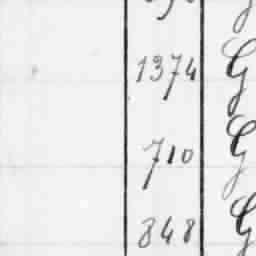 1374 G
710 G
848 G